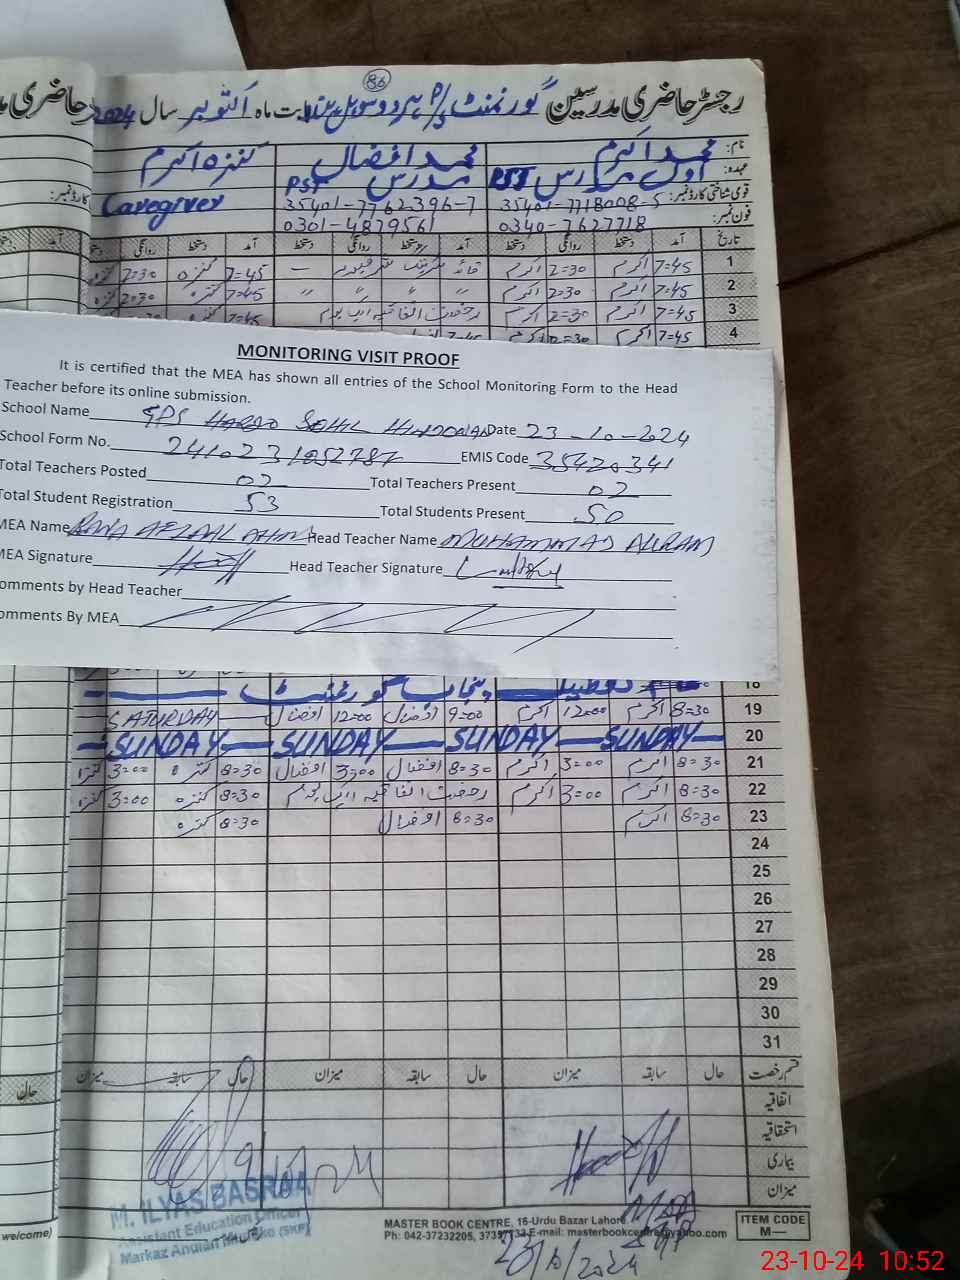 86
رجسٹر حاضری مدرسین گورنمنٹ P/S ہردو سہل ہندواں بابت ماہ اکتوبر سال 2024
نام: محمد اکرم محمد افضال کنزہ اکرم
عہدہ: اول مدرس PST مدرس PST Caregiver
قومی شناختی کارڈ نمبر: 35401-7718008-5 35401-7762396-7
فون نمبر: 0340-7627718 0301-4879561
تاریخ آمد دستخط روانگی دستخط آمد دستخط روانگی دستخط آمد دستخط روانگی
1 7=45 اکرم 2=30 اکرم — 7=45 کنزہ 2=30 کنزہ
2 7=45 اکرم 2=30 اکرم 〃 〃 〃 〃 7=45 کنزہ 2=30 کنزہ
3 7=45 اکرم 2=30 اکرم رخصت اتفاقیہ ایک یوم 7=45 کنزہ
4 7=45 اکرم 2=30 اکرم
MONITORING VISIT PROOF
It is certified that the MEA has shown all entries of the School Monitoring Form to the Head
Teacher before its online submission.
School Name GPS HARDO SOHIL HINDOWAN Date 23-10-2024
School Form No. 2410231052787 EMIS Code 35420341
Total Teachers Posted 02 Total Teachers Present 02
Total Student Registration 53 Total Students Present 50
MEA Name RANA AFZAAL AHMAD Head Teacher Name MUHAMMAD AKRAM
MEA Signature Head Teacher Signature
omments by Head Teacher
omments By MEA
18 تعطیل پنجاب گورنمنٹ
19 8=30 اکرم 12=00 اکرم 9=00 افضال 12=00 افضال SATURDAY
20 SUNDAY SUNDAY SUNDAY SUNDAY
21 8=30 اکرم 3=00 اکرم 8=30 افضال 3=00 افضال 8=30 کنزہ 3=00 کنزہ
22 8=30 اکرم 3=00 اکرم رخصت اتفاقیہ ایک یوم 8=30 کنزہ 3=00 کنزہ
23 8=30 اکرم 8=30 افضال 8=30 کنزہ
24
25
26
27
28
29
30
31
قسم رخصت حال سابقہ میزان حال سابقہ میزان حال سابقہ میزان
اتفاقیہ
استحقاقیہ
بیماری
میزان
M. ILYAS BASRAA
Assistant Education Officer
Markaz
(SKP)
MASTER BOOK CENTRE, 16-Urdu Bazar Lahore.
Ph: 042-37232205, E-mail: masterbookcentre@yahoo.com
ITEM CODE
M—
23/10/2024
welcome)
23-10-24 10:52